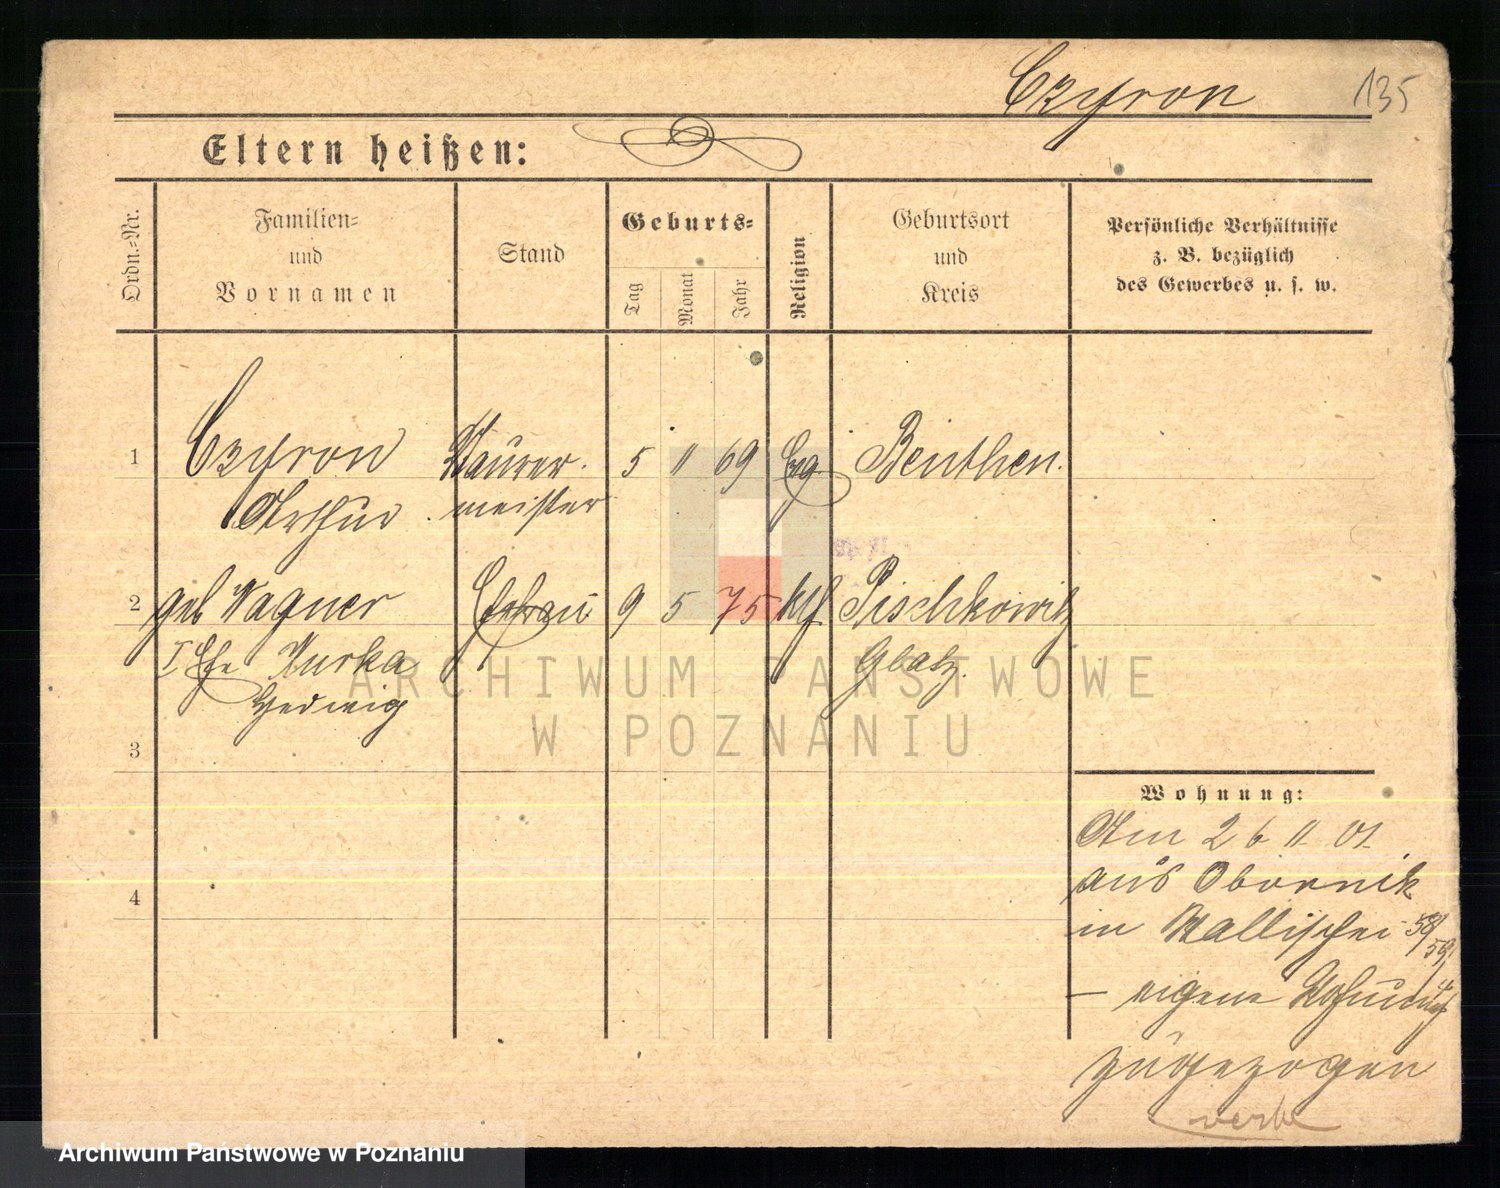 Czyron 135
Eltern heißen:
Ordn.=Nr.
Familien=
und
Vornamen
Stand
Geburts=
Tag
Monat
Jahr
Religion
Geburtsort
und
Kreis
Persönliche Verhältnisse
z. B. bezüglich
des Gewerbes u. s. w.
1 Czyron Maurer- 5 11 69 Evg Beuthen.
Arthur meister
2 geb Wagner Ehefrau 9 5 75 kth Pischkowitz
I Ehe Kurka Glatz.
Hedwig
3
4
Wohnung:
Am 26 11 01
aus Obornik
in Wallischei 58/
59,
– eigene Wohnung
zugezogen
ARCHIWUM PAŃSTWOWE
W POZNANIU
Archiwum Państwowe w Poznaniu